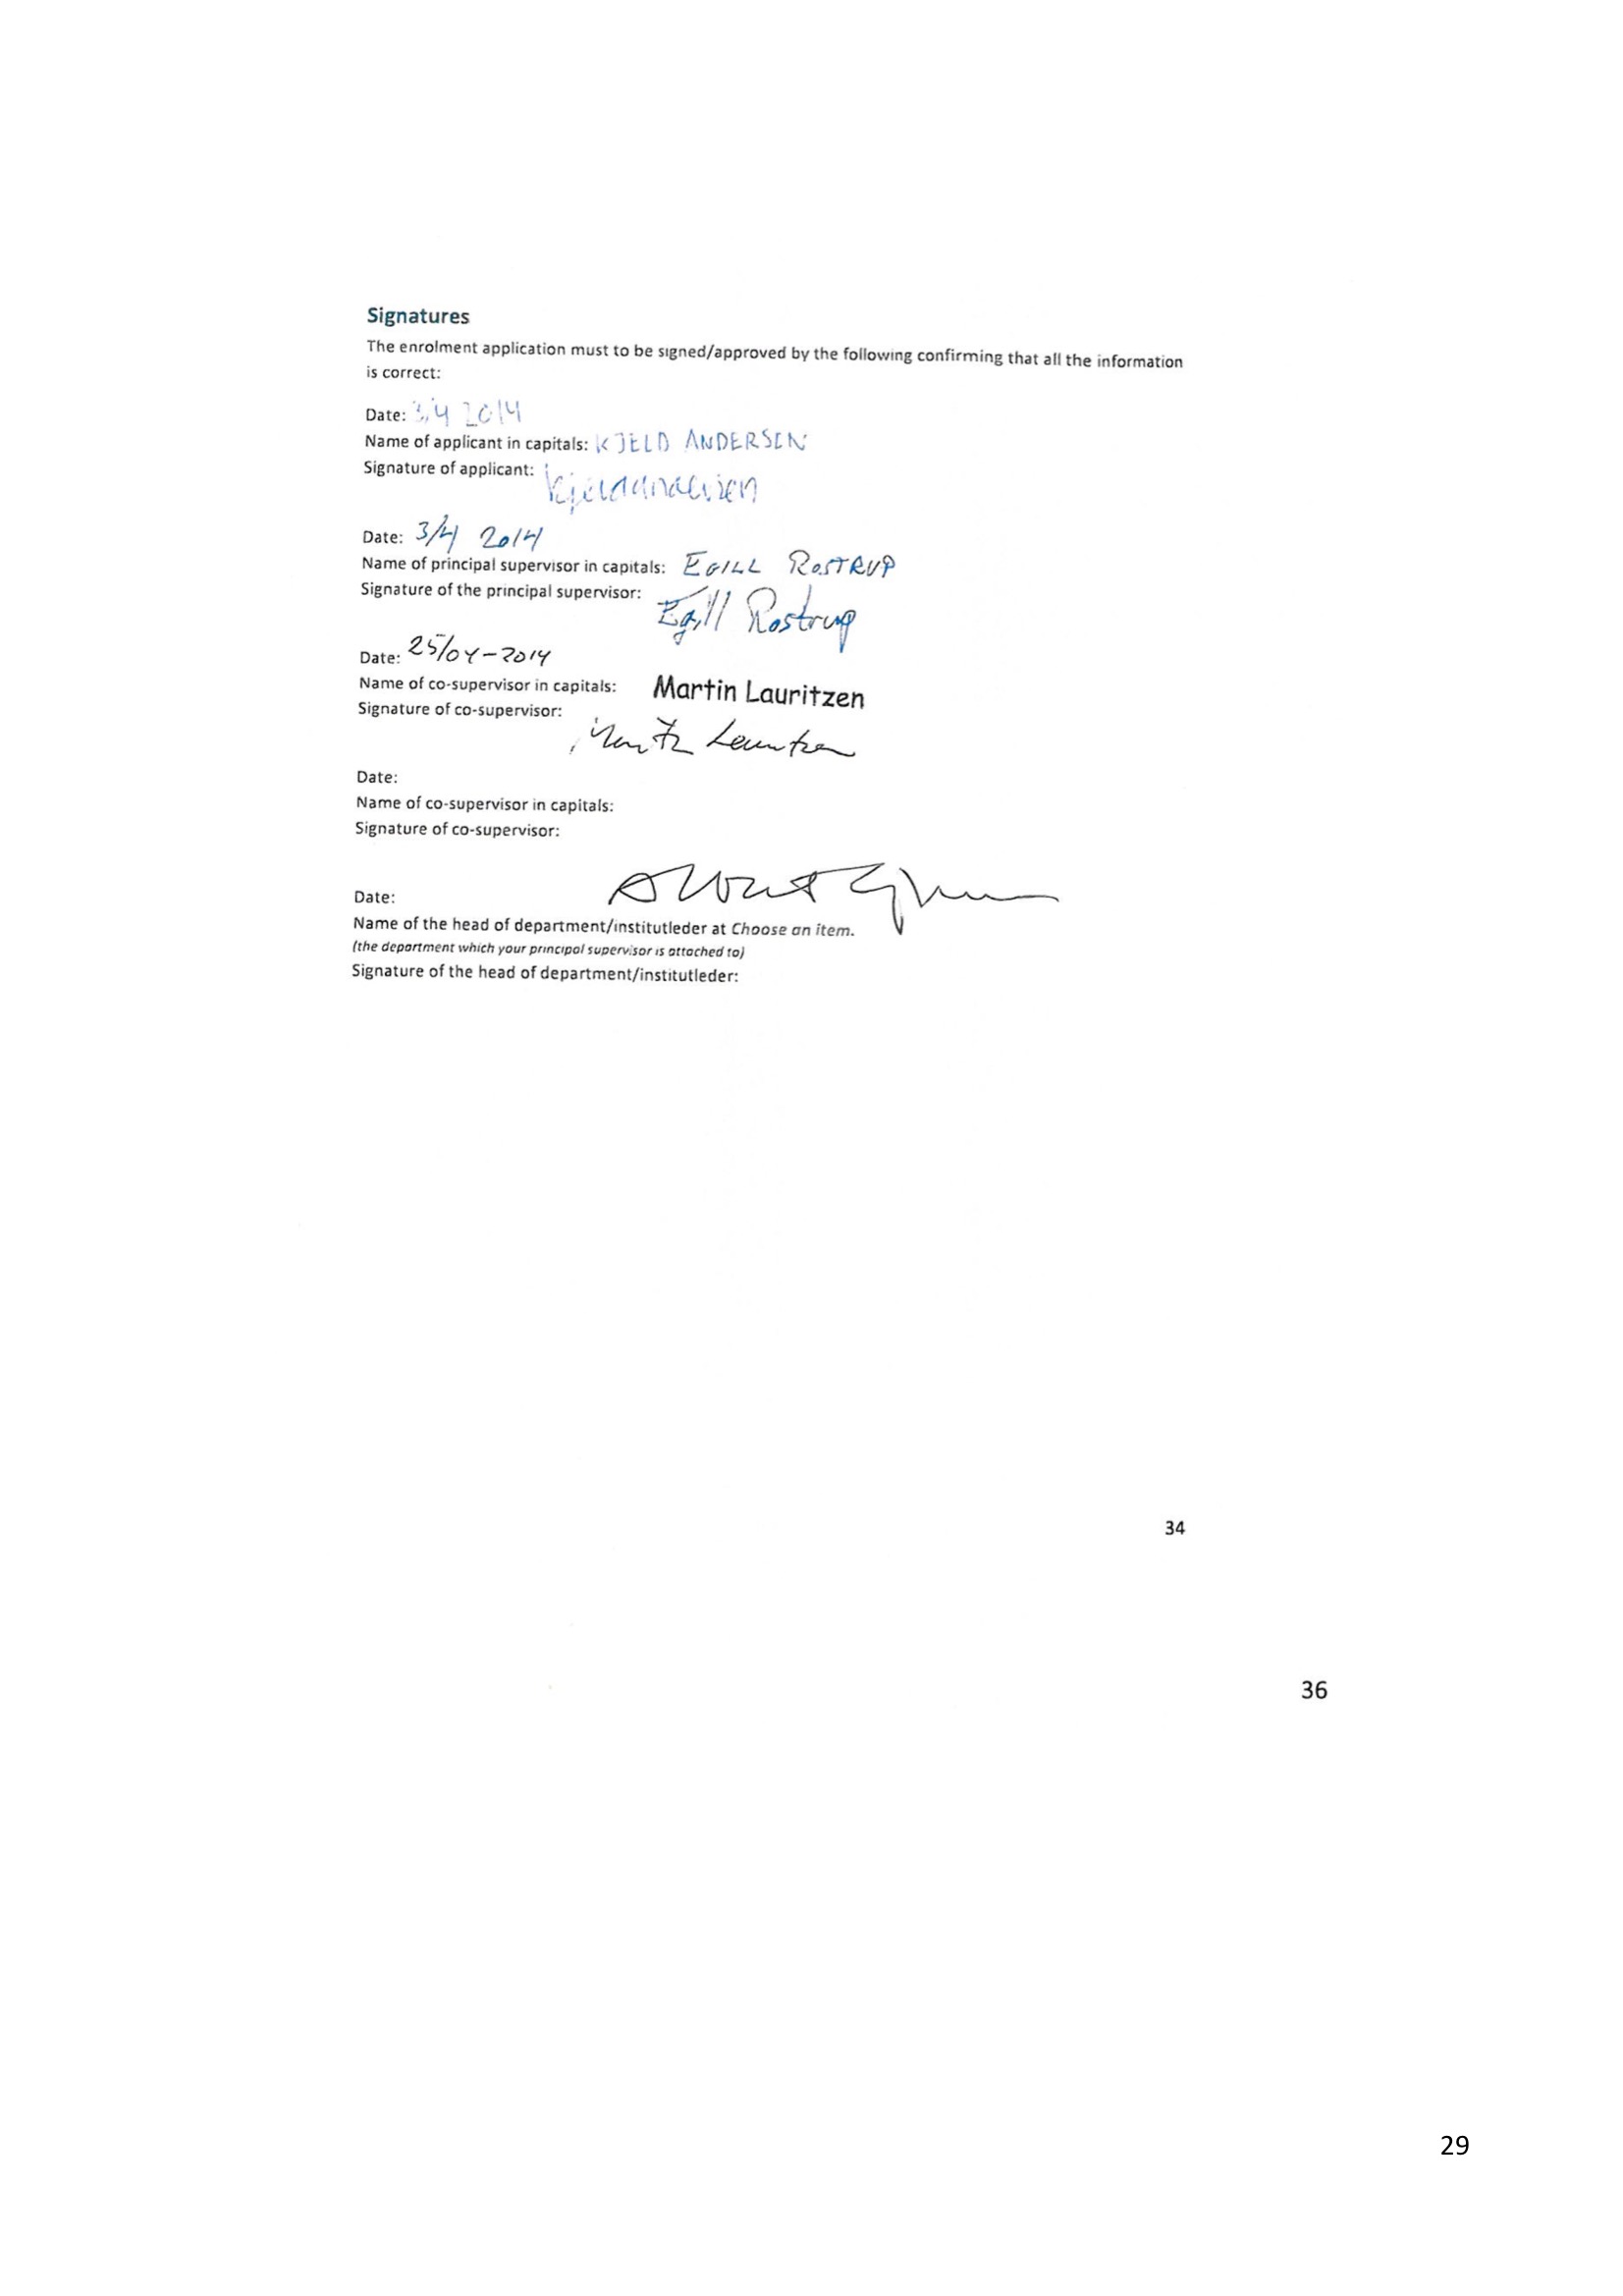 Signatures
The enrolment application must to be signed/approved by the following confirming that all the information
is correct:
Date: 3/4 2014
Name of applicant in capitals: KJELD ANDERSEN
Signature of applicant: Kjeld Andersen
Date: 3/4 2014
Name of principal supervisor in capitals: EGILL ROSTRUP
Signature of the principal supervisor: Egill Rostrup
Date: 25/04-2014
Name of co-supervisor in capitals: Martin Lauritzen
Signature of co-supervisor: Martin Lauritzen
Date:
Name of co-supervisor in capitals:
Signature of co-supervisor:
Date:
Name of the head of department/institutleder at Choose an item.
(the department which your principal supervisor is attached to)
Signature of the head of department/institutleder:
34
36
29